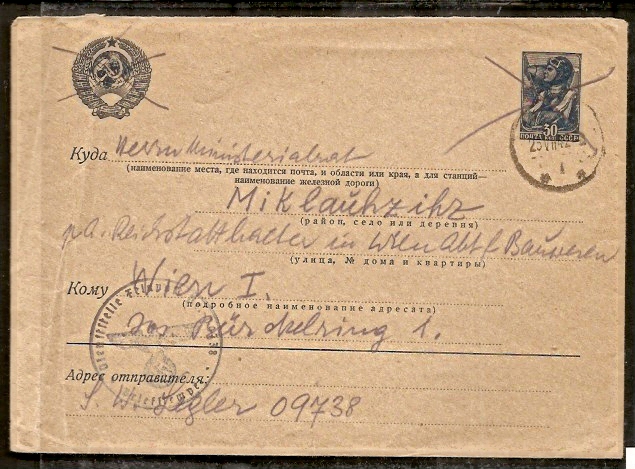 30
ПОЧТА КОП. СССР
Куда Herrn Ministerialrat
(наименование места, где находится почта, и области или края, а для станций—
наименование железной дороги)
Miklauhzihz
(район, село или деревня)
p.A. Reichsstatthalter in Wien Abt f. Bauwesen
(улица, № дома и квартиры)
Кому Wien I.
(подробное наименование адресата)
Jos. Bürckelring 1.
Адрес отправителя:
Legler 09738
Dienststelle Feldpost